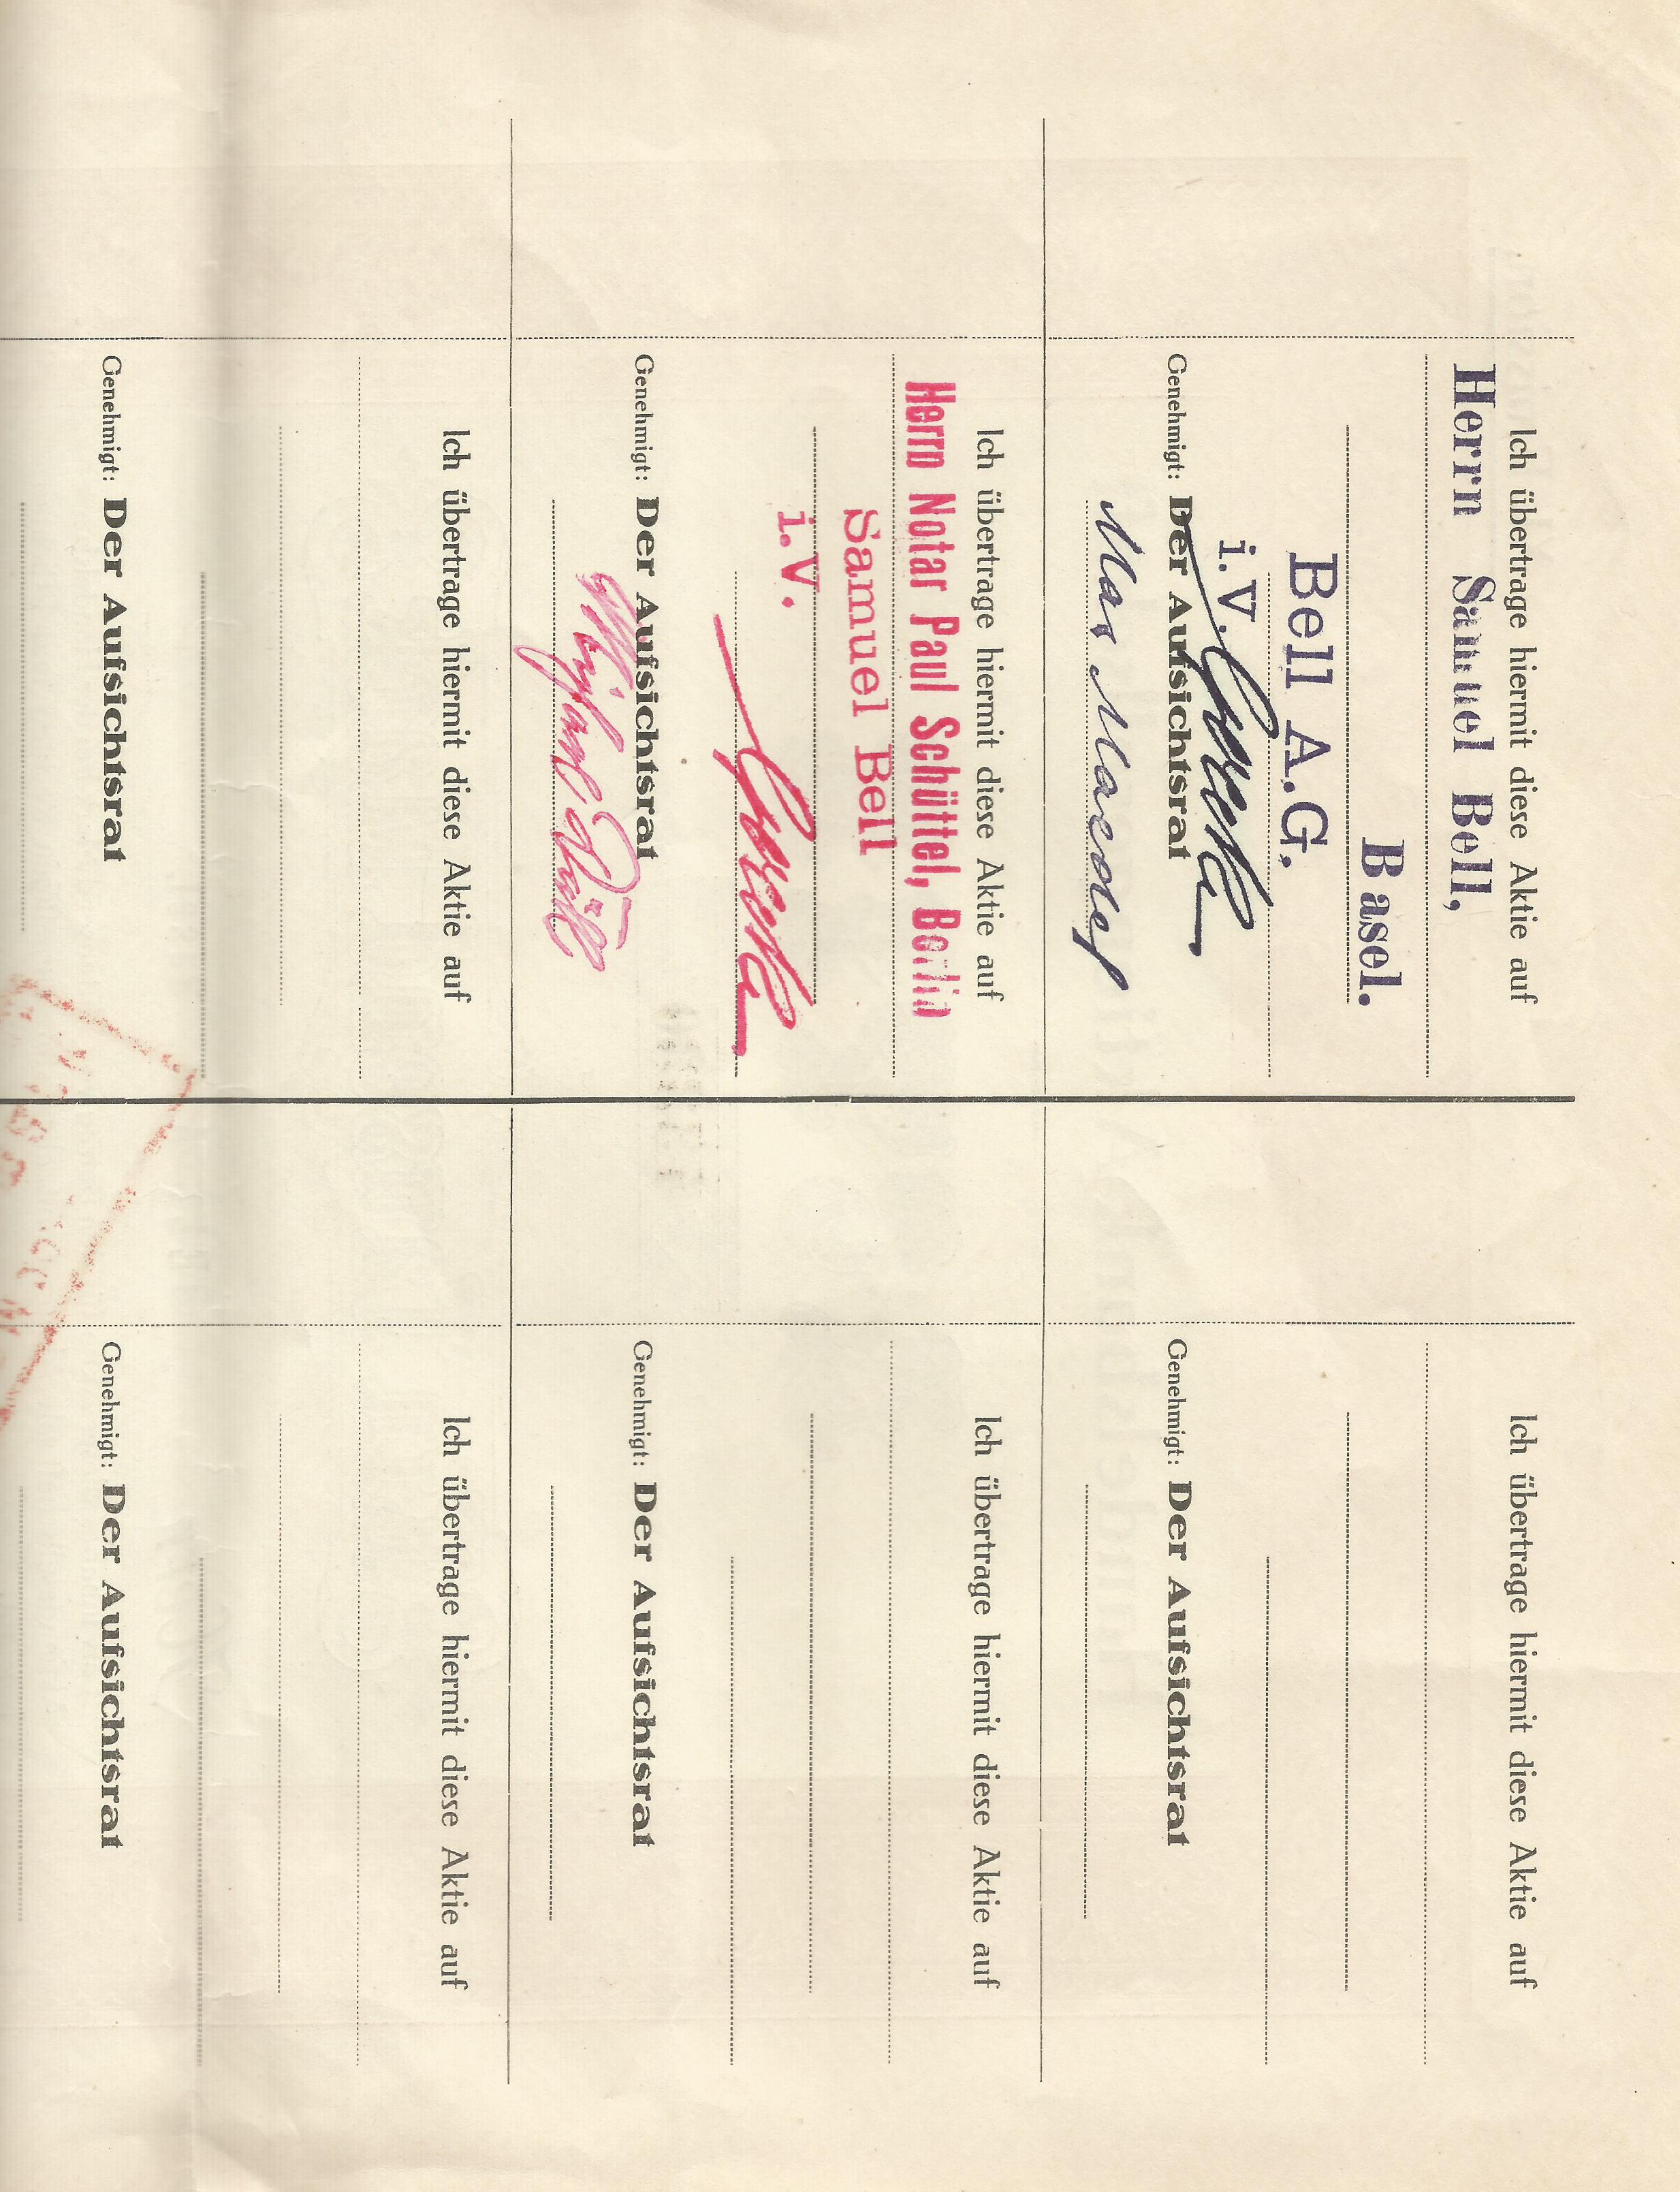 Ich übertrage hiermit diese Aktie auf
Herrn Samuel Bell,
Basel.
Bell A.G.
i.V.
Genehmigt: Der Aufsichtsrat
Ich übertrage hiermit diese Aktie auf
Herrn Notar Paul Schüttel, Berlin
Samuel Bell
i.V.
Genehmigt: Der Aufsichtsrat
Ich übertrage hiermit diese Aktie auf
Genehmigt: Der Aufsichtsrat
Ich übertrage hiermit diese Aktie auf
Genehmigt: Der Aufsichtsrat
Ich übertrage hiermit diese Aktie auf
Genehmigt: Der Aufsichtsrat
Ich übertrage hiermit diese Aktie auf
Genehmigt: Der Aufsichtsrat